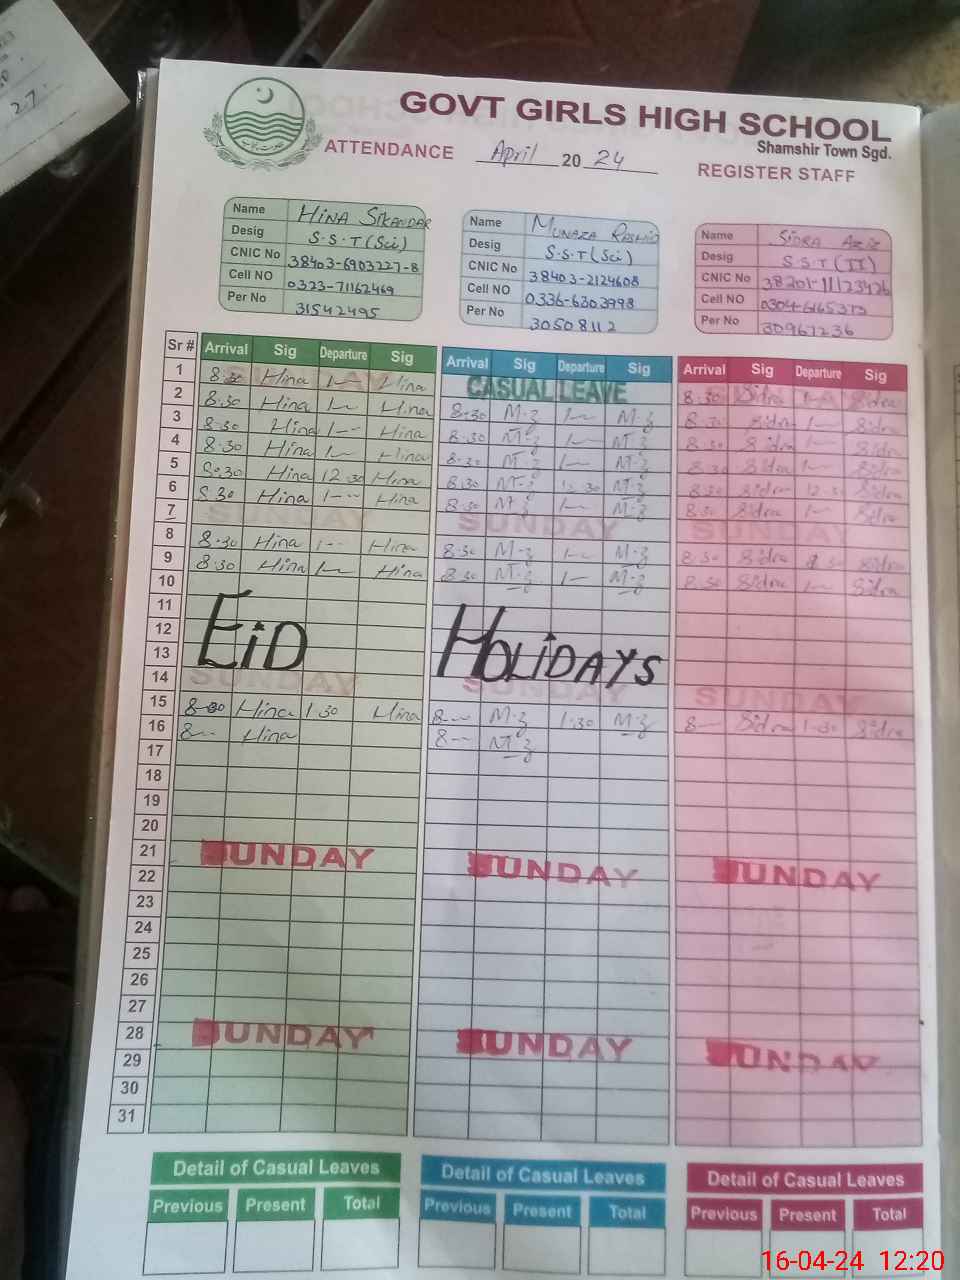 GOVT GIRLS HIGH SCHOOL
Shamshir Town Sgd.
ATTENDANCE April 20 24
REGISTER STAFF
Name HINA SIKANDAR
Desig S.S.T (Sci)
CNIC No 38403-6903227-8
Cell NO 0323-71162469
Per No 31542495
Name MUNAZA RASHID
Desig S.S.T (Sci)
CNIC No 38403-2124608
Cell NO 0336-6303998
Per No 30508112
Name SIDRA AZIZ
Desig S.S.T (II)
CNIC No 38201-11123426
Cell NO 0304-6165373
Per No 30967236
Sr # Arrival Sig Departure Sig Arrival Sig Departure Sig Arrival Sig Departure Sig
1 8.30 Hina 1-- Hina CASUAL LEAVE 8.30 Sidra Sidra
2 8.30 Hina 1-- Hina 8.30 M.z 1-- M.z 8.30 Sidra 1-- Sidra
3 8.30 Hina 1-- Hina 8.30 M.z 1-- M.z 8.30 Sidra 1-- Sidra
4 8.30 Hina 1-- Hina 8.30 M.z 1-- M.z 8.30 Sidra 1-- Sidra
5 8.30 Hina 12.30 Hina 8.30 M.z 12.30 M.z 8.30 Sidra 12.30 Sidra
6 8.30 Hina 1-- Hina 8.30 M.z 1-- M.z 8.30 Sidra 1-- Sidra
7 SUNDAY SUNDAY SUNDAY
8 8.30 Hina 1-- Hina 8.30 M.z 1-- M.z 8.30 Sidra Sidra
9 8.30 Hina 1-- Hina 8.30 M.z 1-- M.z 8.30 Sidra 1-- Sidra
10
11
12 EiD HOLiDAYS
13
14 SUNDAY SUNDAY SUNDAY
15 8-30 Hina 1.30 Hina 8-- M.z 1.30 M.z 8-- Sidra 1-30 Sidra
16 8-- Hina 8-- M.z
17
18
19
20
21 SUNDAY SUNDAY SUNDAY
22
23
24
25
26
27
28 SUNDAY SUNDAY SUNDAY
29
30
31
Detail of Casual Leaves Detail of Casual Leaves Detail of Casual Leaves
Previous Present Total Previous Present Total Previous Present Total
16-04-24 12:20